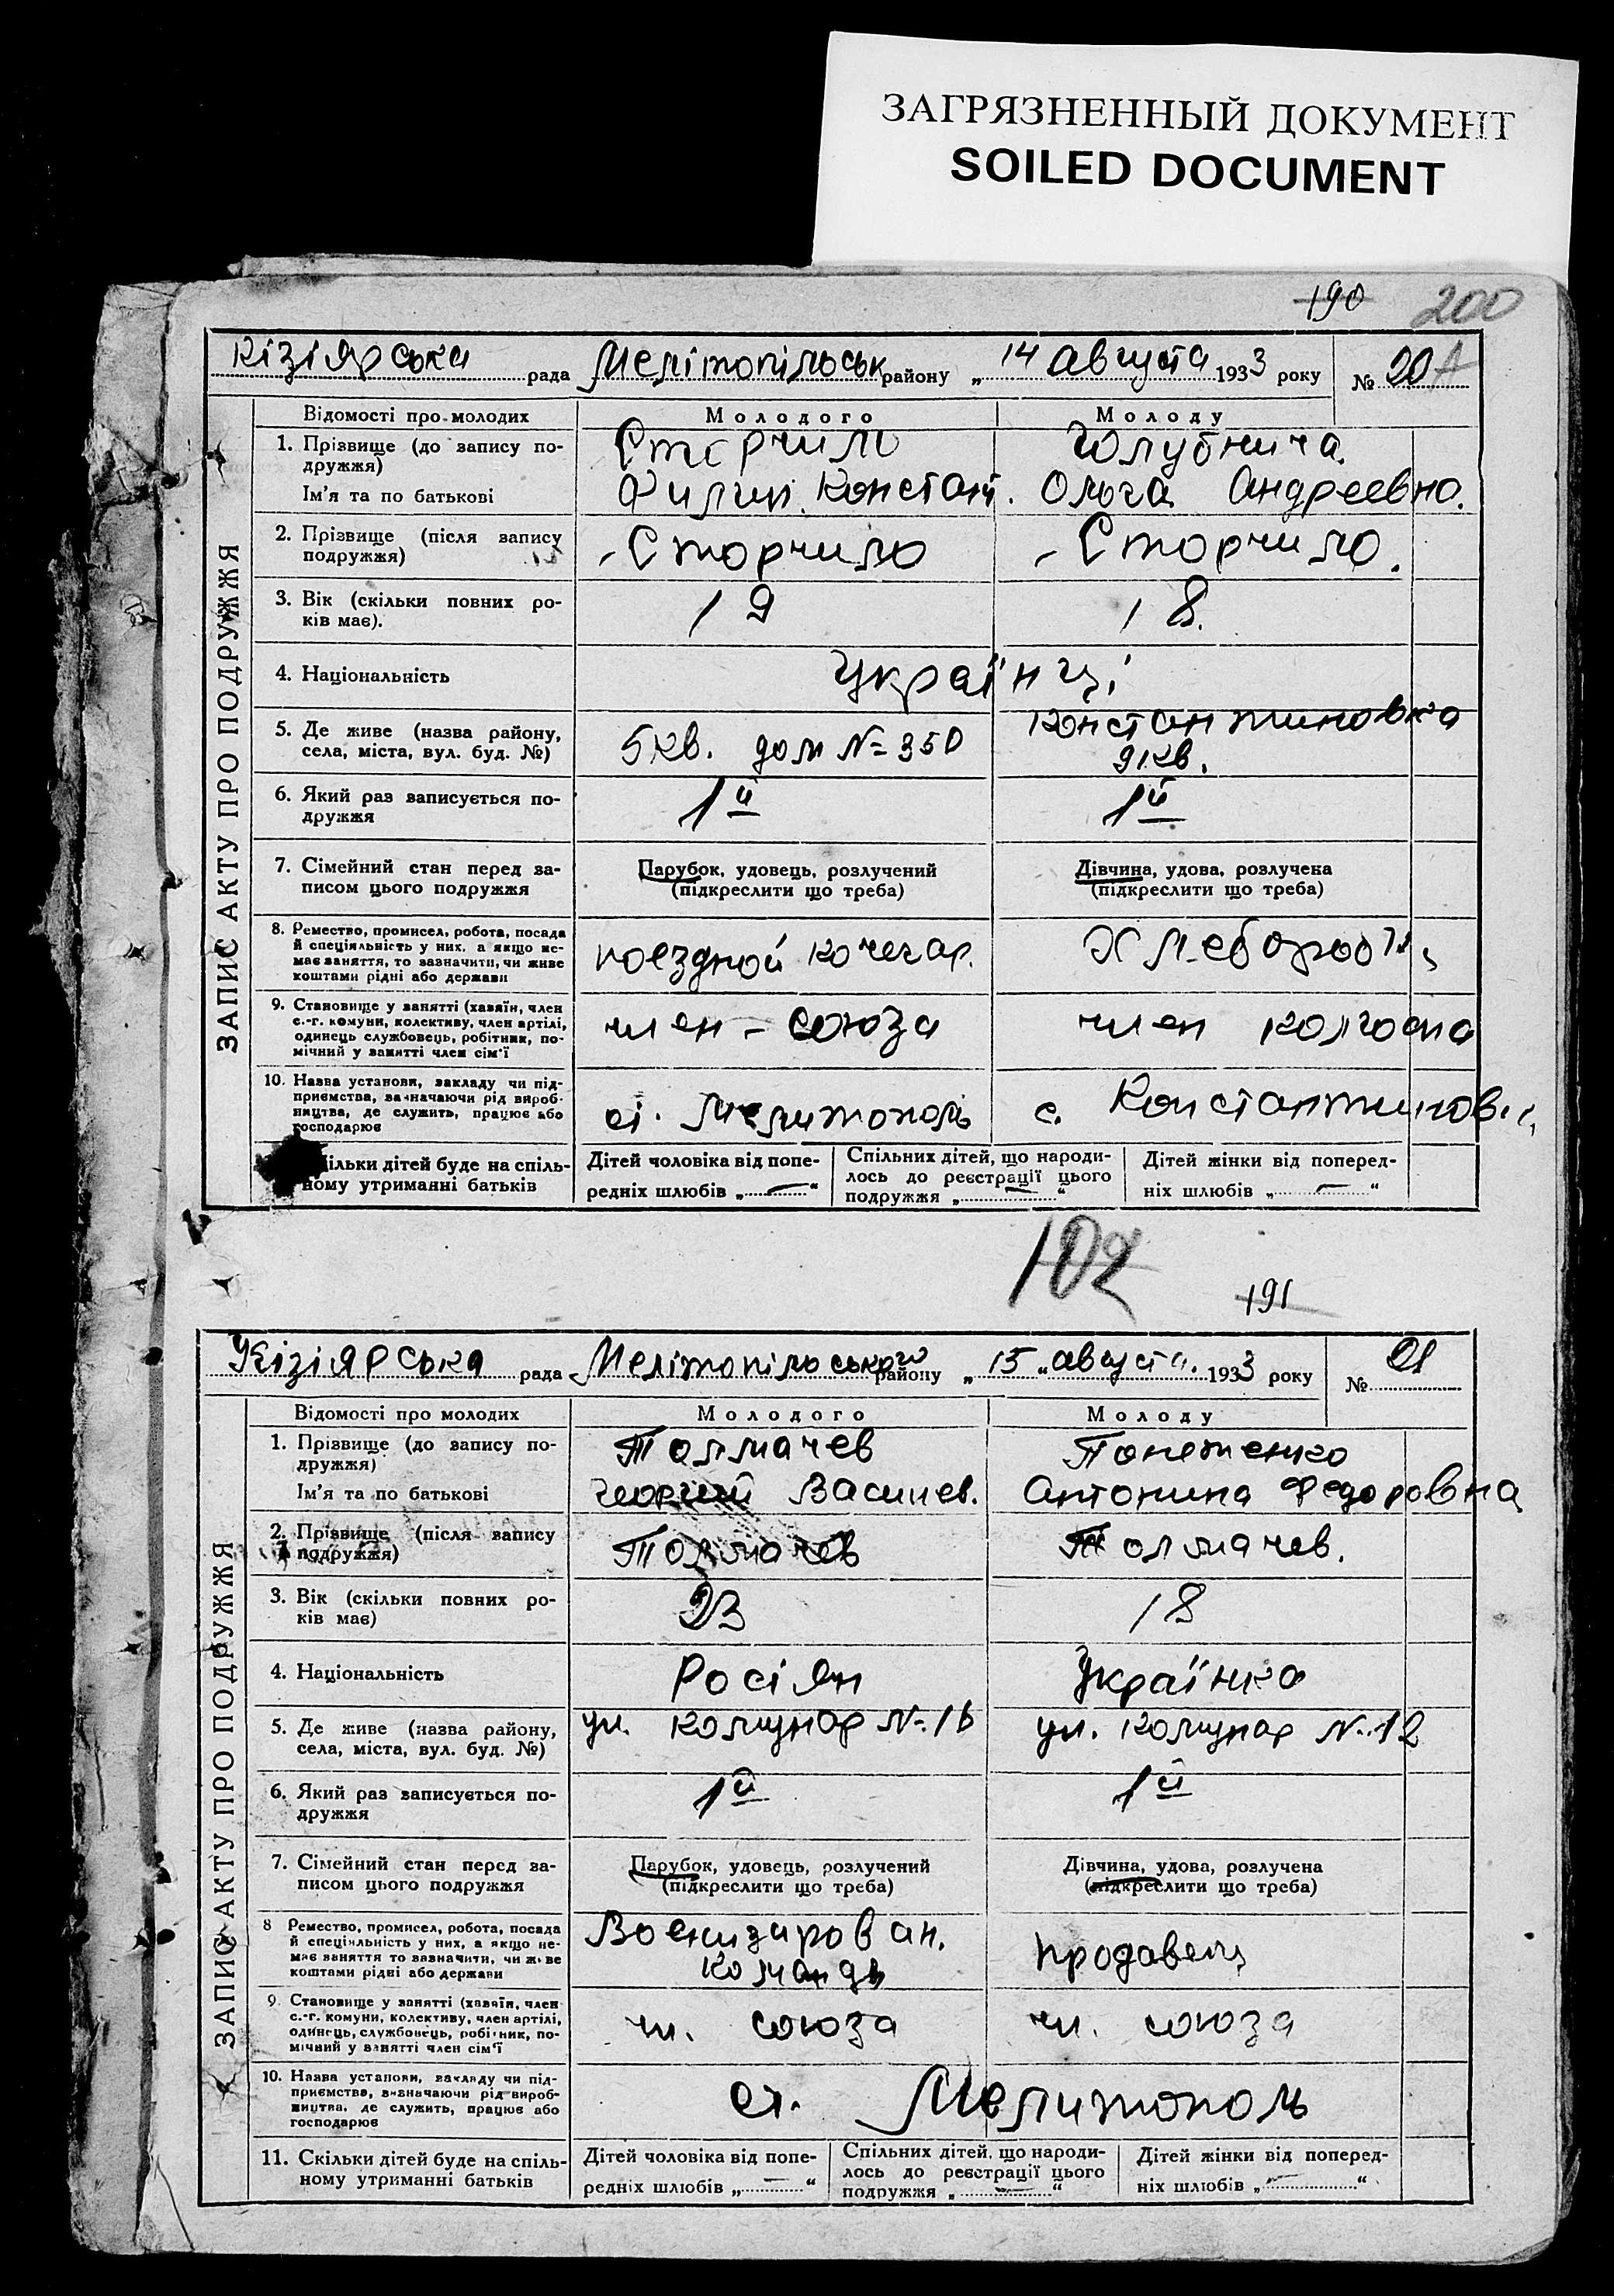 ЗАГРЯЗНЕННЫЙ ДОКУМЕНТ
SOILED DOCUMENT
190 200
Кізіярська рада Мелітопільськ району „ 14 августа 1933 року № 20
ЗАПИС АКТУ ПРО ПОДРУЖЖЯ
Відомості про молодих Молодого Молоду
1. Прізвище (до запису по-
дружжя)
Сторчило Голубнича.
Ім'я та по батькові Филип. Констант. Ольга Андреевна.
2. Прізвище (після запису
подружжя)
Сторчило Сторчило.
3. Вік (скільки повних ро-
ків має).
19 18.
4. Національність Українці
5. Де живе (назва району,
села, міста, вул. буд. №)
5 кв. дом № 350 Константиновка
9 кв.
6. Який раз записується по-
дружжя
1й 1й
7. Сімейний стан перед за-
писом цього подружжя
Парубок, удовець, розлучений
(підкреслити що треба)
Дівчина, удова, розлучена
(підкреслити що треба)
8. Ремество, промисел, робота, посада
й спеціяльність у них, а якщо не-
має заняття, то зазначити, чи живе
коштами рідні або держави
поездной кочегар.
9. Становище у занятті (хазяїн, член
с.-г. комуни, колективу, член артілі,
одинець службовець, робітник, по-
мічний у занятті член сім'ї
член - союза член колгоспа
10. Назва установи, закладу чи під-
приємства, зазначаючи рід вироб-
ництва, де служить, працює або
господарює
ст. Мелитополь с. Константинов
ільки дітей буде на спіль-
ному утриманні батьків
Дітей чоловіка від попе-
редніх шлюбів „ — “
Спільних дітей, що народи-
лось до реєстрації цього
подружжя „ — “
Дітей жінки від поперед-
ніх шлюбів „ — “
102 191
Кізіярська рада Мелітопільського району „ 15 „ августа. 1933 року № 21
ЗАПИС АКТУ ПРО ПОДРУЖЖЯ
Відомості про молодих Молодого Молоду
1. Прізвище (до запису по-
дружжя)
Толмачев
Ім'я та по батькові Георгий Васильев. Антонина Федоровна
2. Прізвище (після запису
подружжя)
Толмачев Толмачев.
3. Вік (скільки повних ро-
ків має)
23 18
4. Національність Росіян Українка
5. Де живе (назва району,
села, міста, вул. буд. №)
ул. Комунар № 16 ул. Комунар № 12
6. Який раз записується по-
дружжя
1й 1й
7. Сімейний стан перед за-
писом цього подружжя
Парубок, удовець, розлучений
(підкреслити що треба)
Дівчина, удова, розлучена
(підкреслити що треба)
8 Ремество, промисел, робота, посада
й спеціяльність у них, а якщо не-
має заняття то зазначити, чи живе
коштами рідні або держави
Военизирован.
команды
продавец
9. Становище у занятті (хазяїн, член
с.-г. комуни, колективу, член артілі,
одинець, службовець, робітник, по-
мічний у занятті член сім'ї
чл. союза чл. союза
10. Назва установи, закладу чи під-
приємства, зазначаючи рід вироб-
ництва, де служить, працює або
господарює
ст. Мелитополь
11. Скільки дітей буде на спіль-
ному утриманні батьків
Дітей чоловіка від попе-
редніх шлюбів „ — “
Спільних дітей, що народи-
лось до реєстрації цього
подружжя „ — “
Дітей жінки від поперед-
ніх шлюбів „ — “